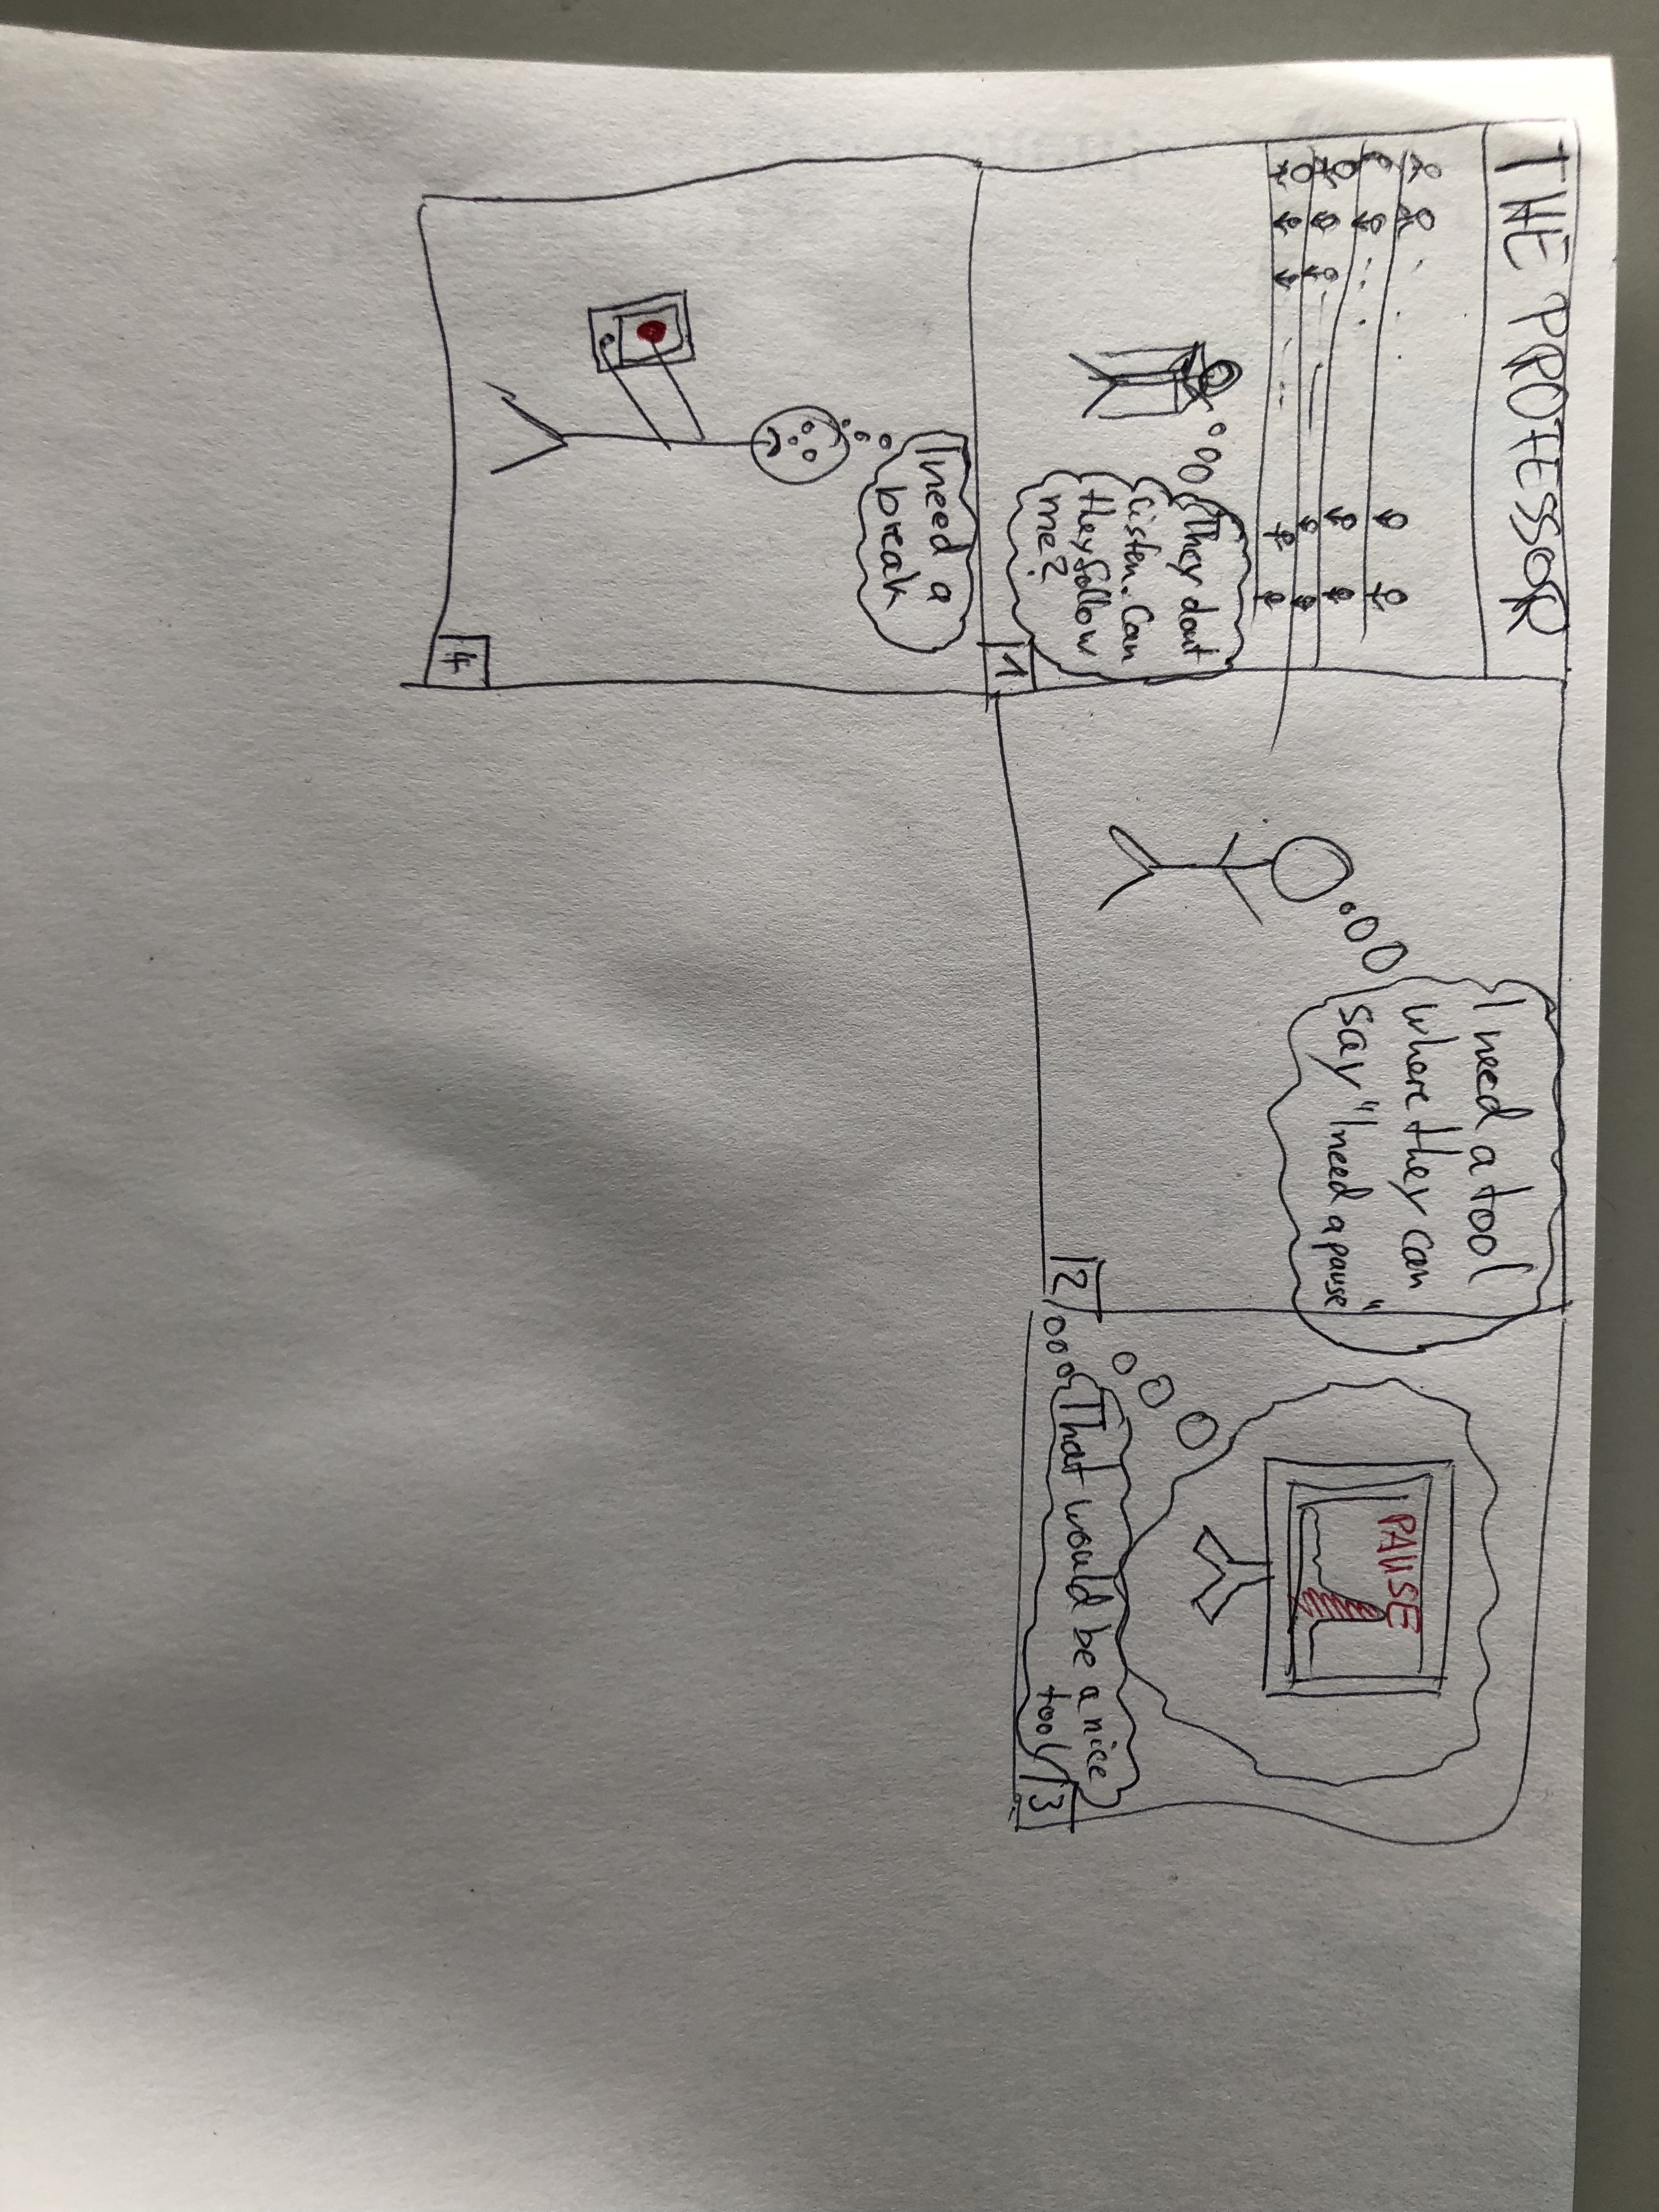 THE PROFESSOR
They dont
listen. Can
they follow
me?
1
I need a tool
where they can
say "I need a pause"
2
PAUSE
That would be a nice
tool
3
I need a
break
4